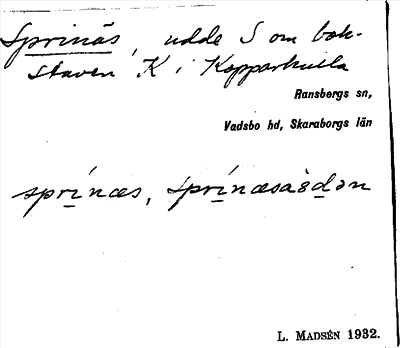 Sprinäs, udde S om bok-
staven K i Kopparhulla
Ransbergs sn,
Vadsbo hd, Skaraborgs län
sprínæs, sprínæsåsdən
L. MADSÉN 1932.